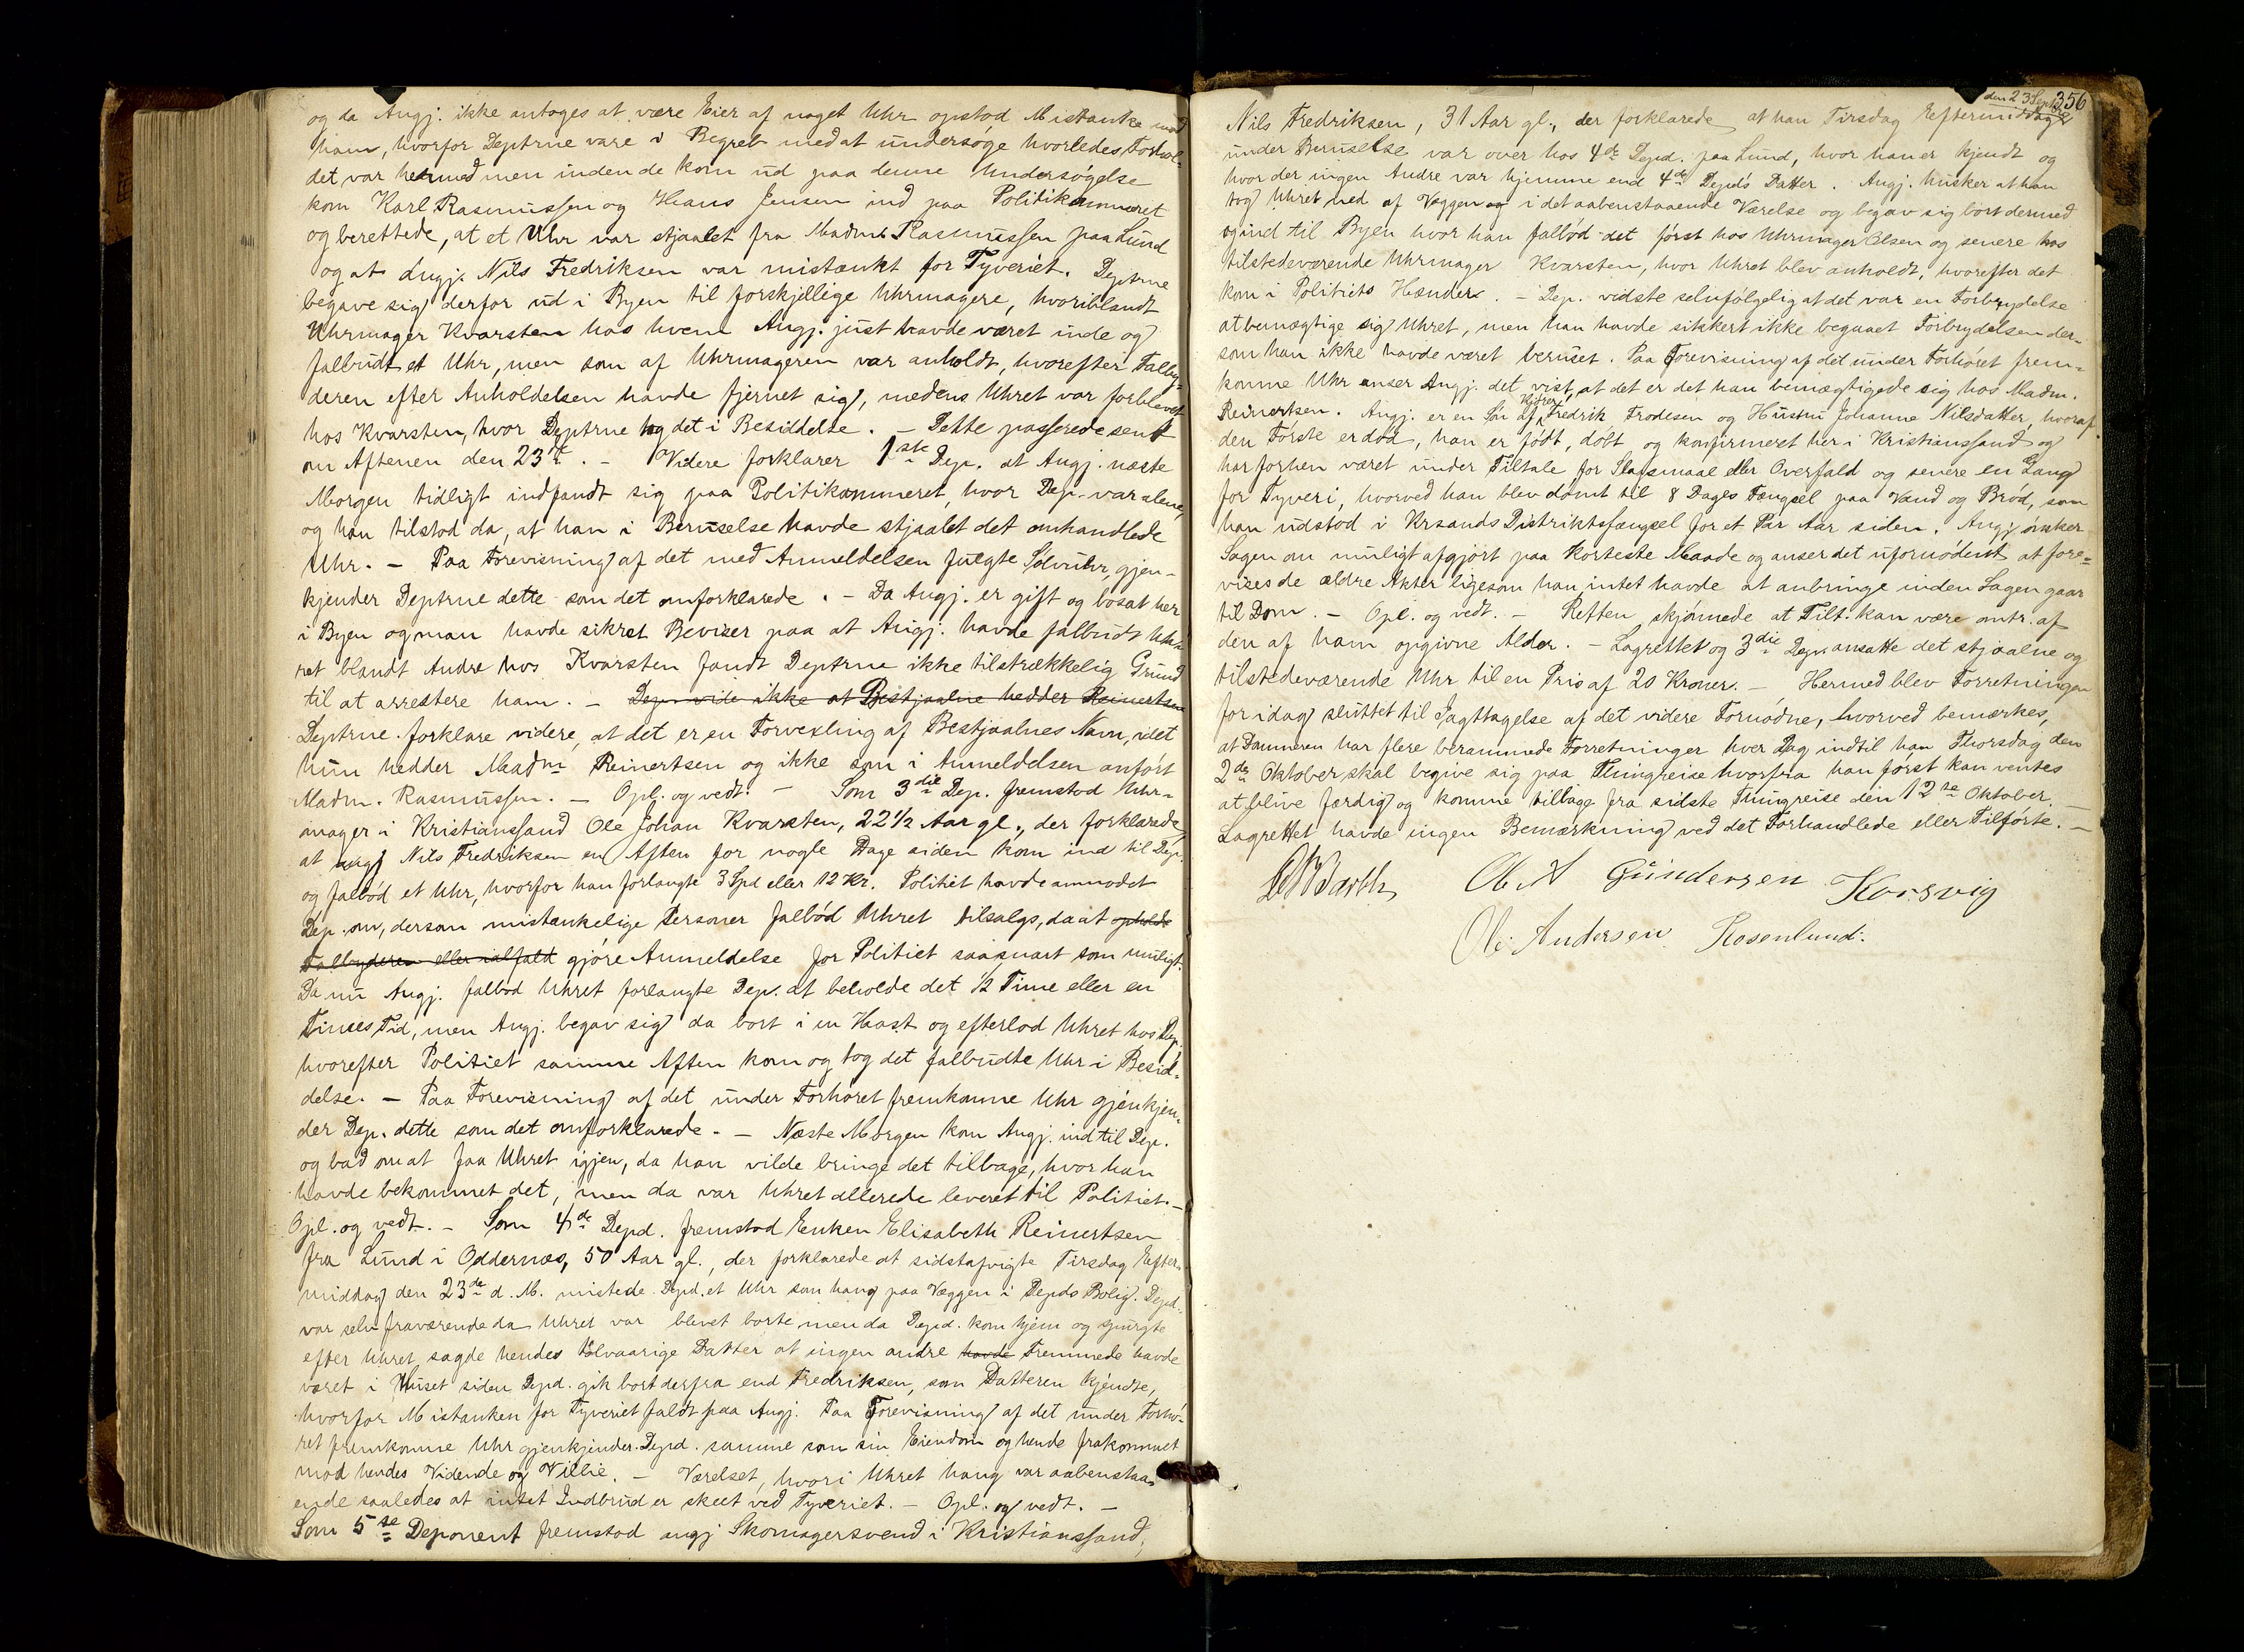 og da Angj. ikke antoges at være Eier af noget Uhr opstod Mistanke mod
ham, hvorfor Deptrne vare i Begreb med at undersøge hvorledes Forhol-
det var hermed men inden de kom ud paa denne Undersøgelse
kom Karl Rasmussen og Hans Jensen ind paa Politikammeret
og berettede, at et Uhr var stjaalet fra Madm Rasmussen paa Lund
og at Angj. Nils Fredriksen var mistænkt for Tyveriet. Deptrne
begave sig derfor ud i Byen til forskjellige Uhrmagere, hvoriblandt
Uhrmager Kvarsten hos hvem Angj. just havde været inde og
falbudt et Uhr, men som af Uhrmageren var anholdt, hvorefter Falby-
deren efter Anholdelsen havde fjernet sig, medens Uhret var forblevet
hos Kvarsten, hvor Deptrne tog det i Besiddelse. – Dette passerede sent
om Aftenen den 23de. – Videre forklarer 1ste Dep. at Angj. næste
Morgen tidligt indfandt sig paa Politikammeret, hvor Dep. var alene,
og han tilstod da, at han i Beruselse havde stjaalet det omhandlede
Uhr. – Paa Forevisning af det med Anmeldelsen fulgte Sølvuhr, gjen-
kjender Deptrne dette som det omforklarede. – Da Angj. er gift og bosat her
i Byen og man havde sikret Beviser paa at Angj. havde falbudt Uh-
ret blandt Andre hos Kvarsten fandt Deptrne ikke tilstrækkelig Grund
til at arrestere ham. – Dep. vide ikke at Bestjaalne hedder Reinertsen
Deptrne forklare videre, at det er en Forvexling af Bestjaalnes Navn, idet
hun hedder Madm Reinertsen og ikke som i Anmeldelsen anført
Madm. Rasmussen. – Opl. og vedt. – Som 3die Dep. fremstod Uhr-
mager i Kristianssand Ole Johan Kvarsten, 22 1/2 Aar gl., der forklarede
at Angj Nils Fredriksen en Aften for nogle Dage siden kom ind til Dep.
og falbød et Uhr, hvorfor han forlangte 3 Spd eller 12 Kr. Politiet havde anmodet
Dep. om, dersom mistænkelige Personer falbød Uhret tilsalgs, da at opholde
Falbyderen eller ialfald gjøre Anmeldelse for Politiet saasnart som muligt.
Da nu Angj. falbød Uhret forlangte Dep. at beholde det 1/2 Time eller en
Times Tid, men Angj. begav sig da bort i en Hast og efterlod Uhret hos Dep.
hvorefter Politiet samme Aften kom og tog det falbudte Uhr i Besid-
delse. – Paa Forevisning af det under Forhøret fremkomne Uhr gjenkjen-
der Dep. dette som det omforklarede. – Næste Morgen kom Angj. ind til Dep.
og bad om at faa Uhret igjen, da han vilde bringe det tilbage, hvor han
havde bekommet det, men da var Uhret allerede leveret til Politiet. –
Opl. og vedt. – Som 4de Depd. fremstod Enken Elisabeth Reinertsen
fra Lund i Oddernæs, 50 Aar gl., der forklarede at sidstafvigte Tirsdag Efter-
middag den 23de d. M. mistede Depd. et Uhr som hang paa Væggen i Depds Bolig. Depd.
var selv fraværende da Uhret var blevet borte men da Depd. kom hjem og spurgte
efter Uhret sagde hendes tolvaarige Datter at ingen andre havde Fremmede havde
været i Huset siden Depd. gik bort derfra end Fredriksen, som Datteren kjendte,
hvorfor Mistanken for Tyveriet faldt paa Angj. Paa Forevisning af det under Forhø-
ret fremkomne Uhr gjenkjender Depd. samme som sin Eiendom og hende frakommet
mod hendes Vidende og Villie. – Værelset, hvori Uhret hang var aabenstaa-
ende saaledes at intet Indbrud er skeet ved Tyveriet. – Opl. og vedt. –
Som 5te Deponent fremstod angj Skomagersvend i Kristianssand,
356
den 23 Sept.
Nils Fredriksen, 31 Aar gl., der forklarede at han Tirsdag Eftermiddag
under Beruselse var over hos 4de Depd. paa Lund, hvor han er kjendt og
hvor der ingen Andre var hjemme end 4de Depds Datter. Angj. husker at han
tog Uhret ned af Væggen og i det aabenstaaende Værelse og begav sig bort dermed
og ind til Byen hvor han falbød det først hos Uhrmager Olsen og senere hos
tilstedeværende Uhrmager Kvarsten, hvor Uhret blev anholdt, hvorefter det
kom i Politiets Hænder. – Dep. vidste selvfølgelig at det var en Forbrydelse
at bemægtige sig Uhret, men han havde sikkert ikke begaaet Forbrydelsen der-
som han ikke havde været beruset. Paa Forevisning af det under Forhøret frem-
komne Uhr anser Angj. det vist, at det er det han bemægtigede sig hos Madm.
Reinertsen. Angj. er en Søn af Kjører Fredrik Frodesen og Hustru Johanne Nilsdatter, hvoraf
den Første er død, han er født, døbt og konfirmeret her i Kristianssand og
har forhen været under Tiltale for Slagsmaal eller Overfald og senere en Gang
for Tyveri, hvorved han blev dømt til 8 Dages Fængsel paa Vand og Brød, som
han udstod i Krsands Distriktsfængsel for et Par Aar siden. Angj. ønsker
Sagen om muligt afgjort paa korteste Maade og anser det ufornødent at fore-
vises de ældre Akter ligesom han intet havde at anbringe inden Sagen gaar
til Dom. – Opl. og vedt. – Retten skjønnede at Tilt. kan være omtr. af
den af ham opgivne Alder. – Lagrettet og 3die Dep. ansatte det stjaalne og
tilstedeværende Uhr til en Pris af 20 Kroner. – Hermed blev Forretningen
for idag sluttet til Iagttagelse af det videre Fornødne, hvorved bemærkes,
at Dommeren har flere berammede Forretninger hver Dag indtil han Thorsdag den
2den Oktober skal begive sig paa Thingreise hvorfra han først kan ventes
at blive færdig og komme tilbage fra sidste Thingreise den 12te Oktober. –
Lagrettet havde ingen Bemærkning ved det Forhandlede eller Tilførte. –
Ole A Gundersen Korsvig
Ole Andersen Rosenlund.